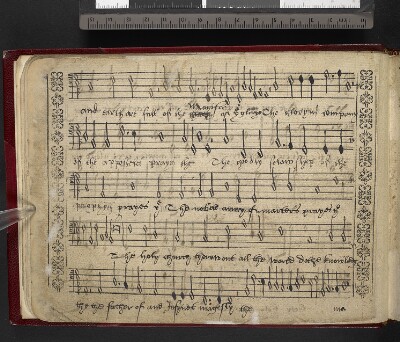 and earth are full of the maiestie of thy glorie The glorius company
of the apostles praise the The godly fellowship of the
prophets prayse ye The noble army of marters prayse ye
The holy church thorowout all the world doth knowledg
the the father of and Infynit maiesty the